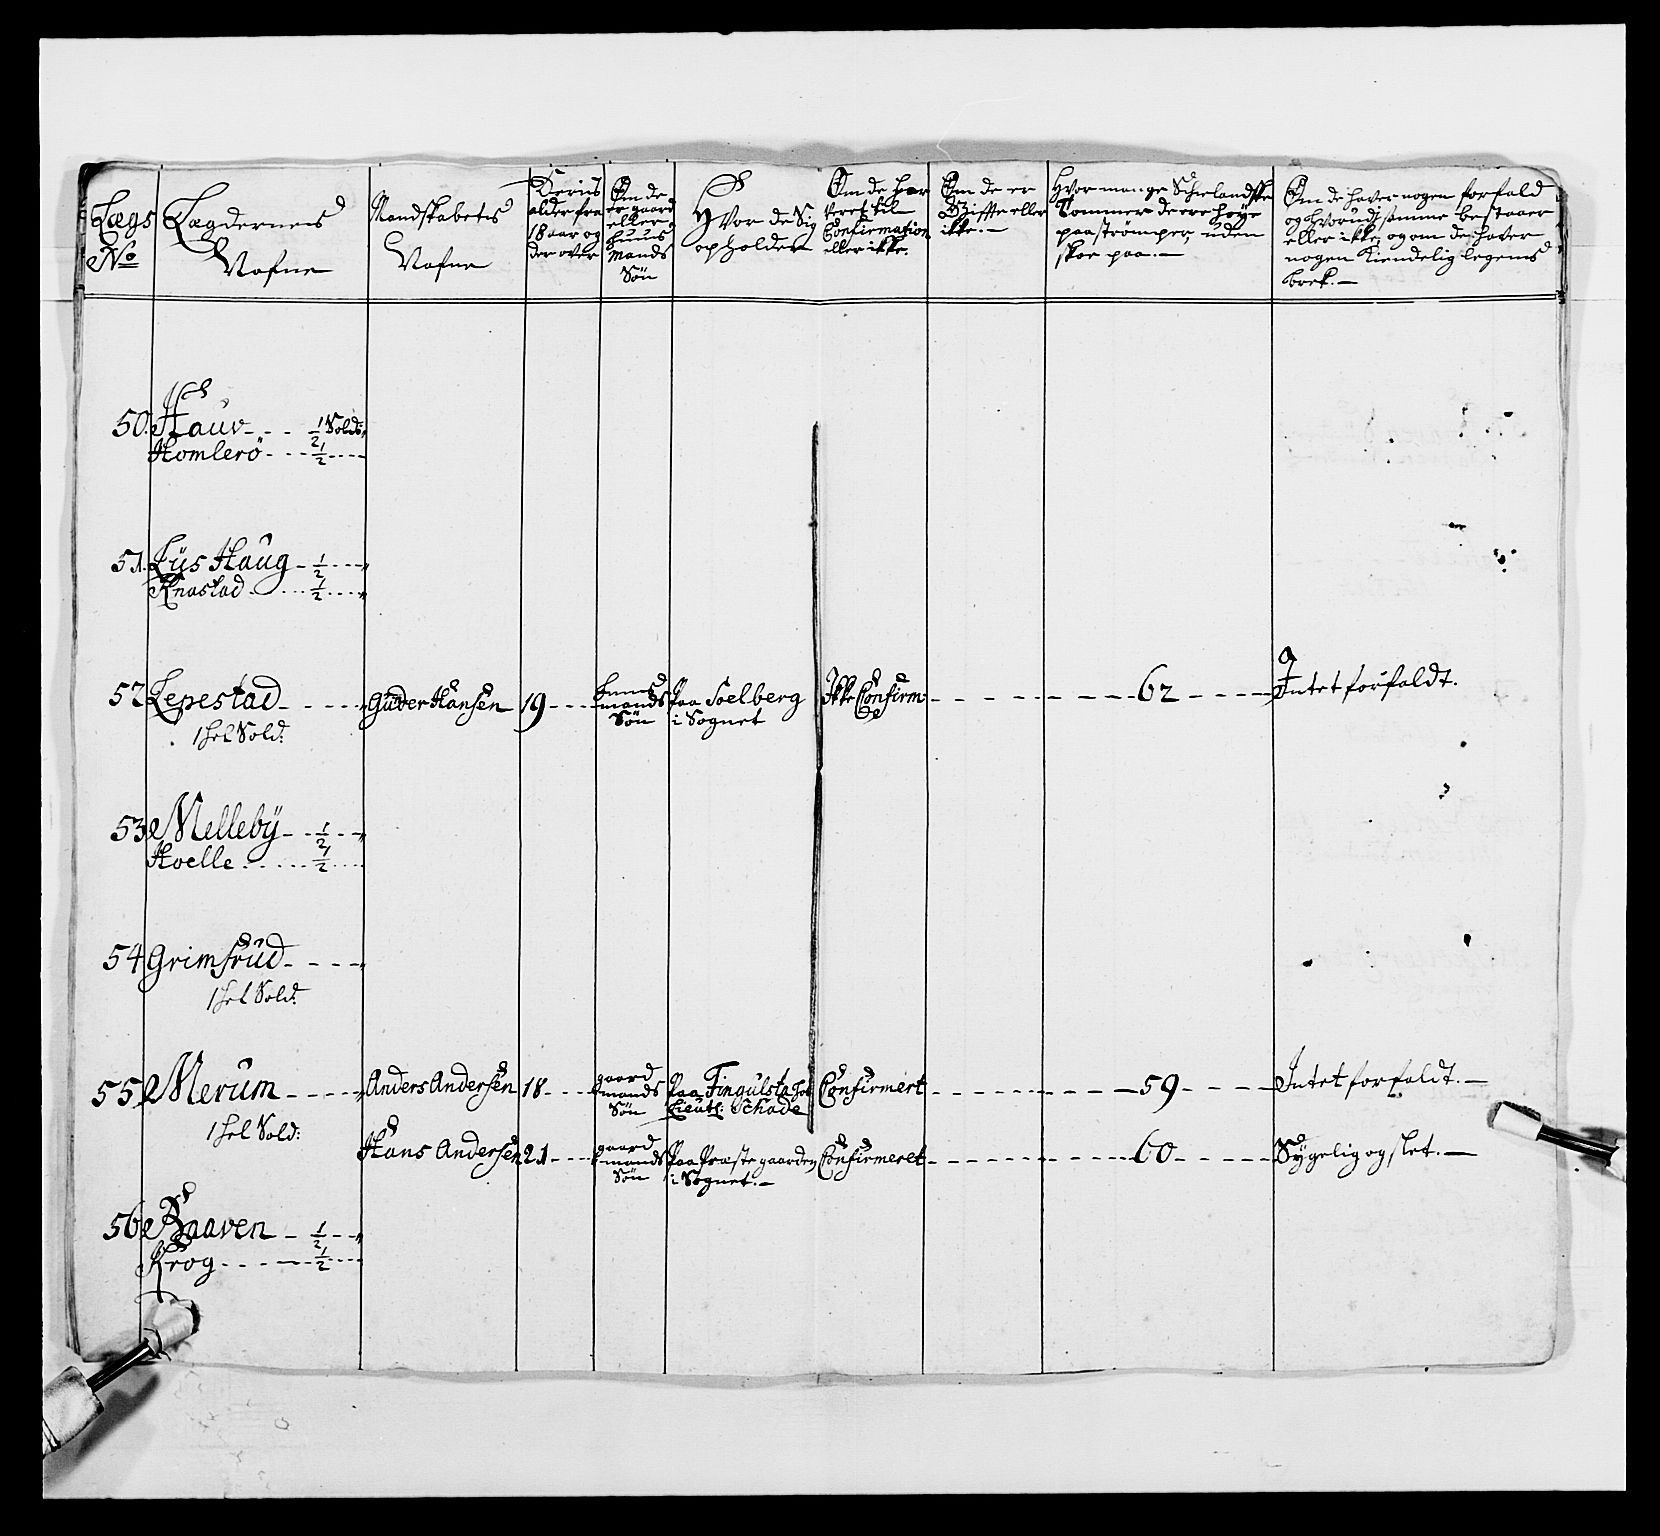 Lægs
No
Lægdernes
Nafne
Mandskabetes
Nafne
Deris
alder fra
18 aar og
der over
Om de
er gaard
eller
huus
mands
Søn
Hvor de Sig
opholder
Om de har
veret til
Confirmation
eller ikke.
Om de er
Giffte eller
ikke.
Hvor mange Siælandske
Tommer de ere høye
paa strømper, uden
skoe paa.
Om de haver nogen forfald
og hvorudj samme bestaaer
eller ikke, og om de haver
nogen Kiendelig legems
brek.
50. Hauv 1/2 Sold:
Homlerö 1/2
51. Liis Haug 1/2
Knastad 1/2
52 Lepestad Guder Hansen 19 huus mands Søn Paa Soelberg i Sognet Ikke Confirmde 62 Intet forfaldt.
1 hel Sold:
53 Mellebÿ 1/2
Hoelle 1/2
54 Grimsrüd
1 hel Sold:
55 Merum Anders Andersen 18 gaard mands Søn Paa Fingulsta hos Lieutl: Schade Confirmert 59 Intet forfaldt.
1 hel Sold:
Hans Andersen 21 gaard mands Søn Paa Præste gaarden i Sognet. Confirmeret 60 Sygelig og slet.
56 Raaven 1/2
Krog 1/2